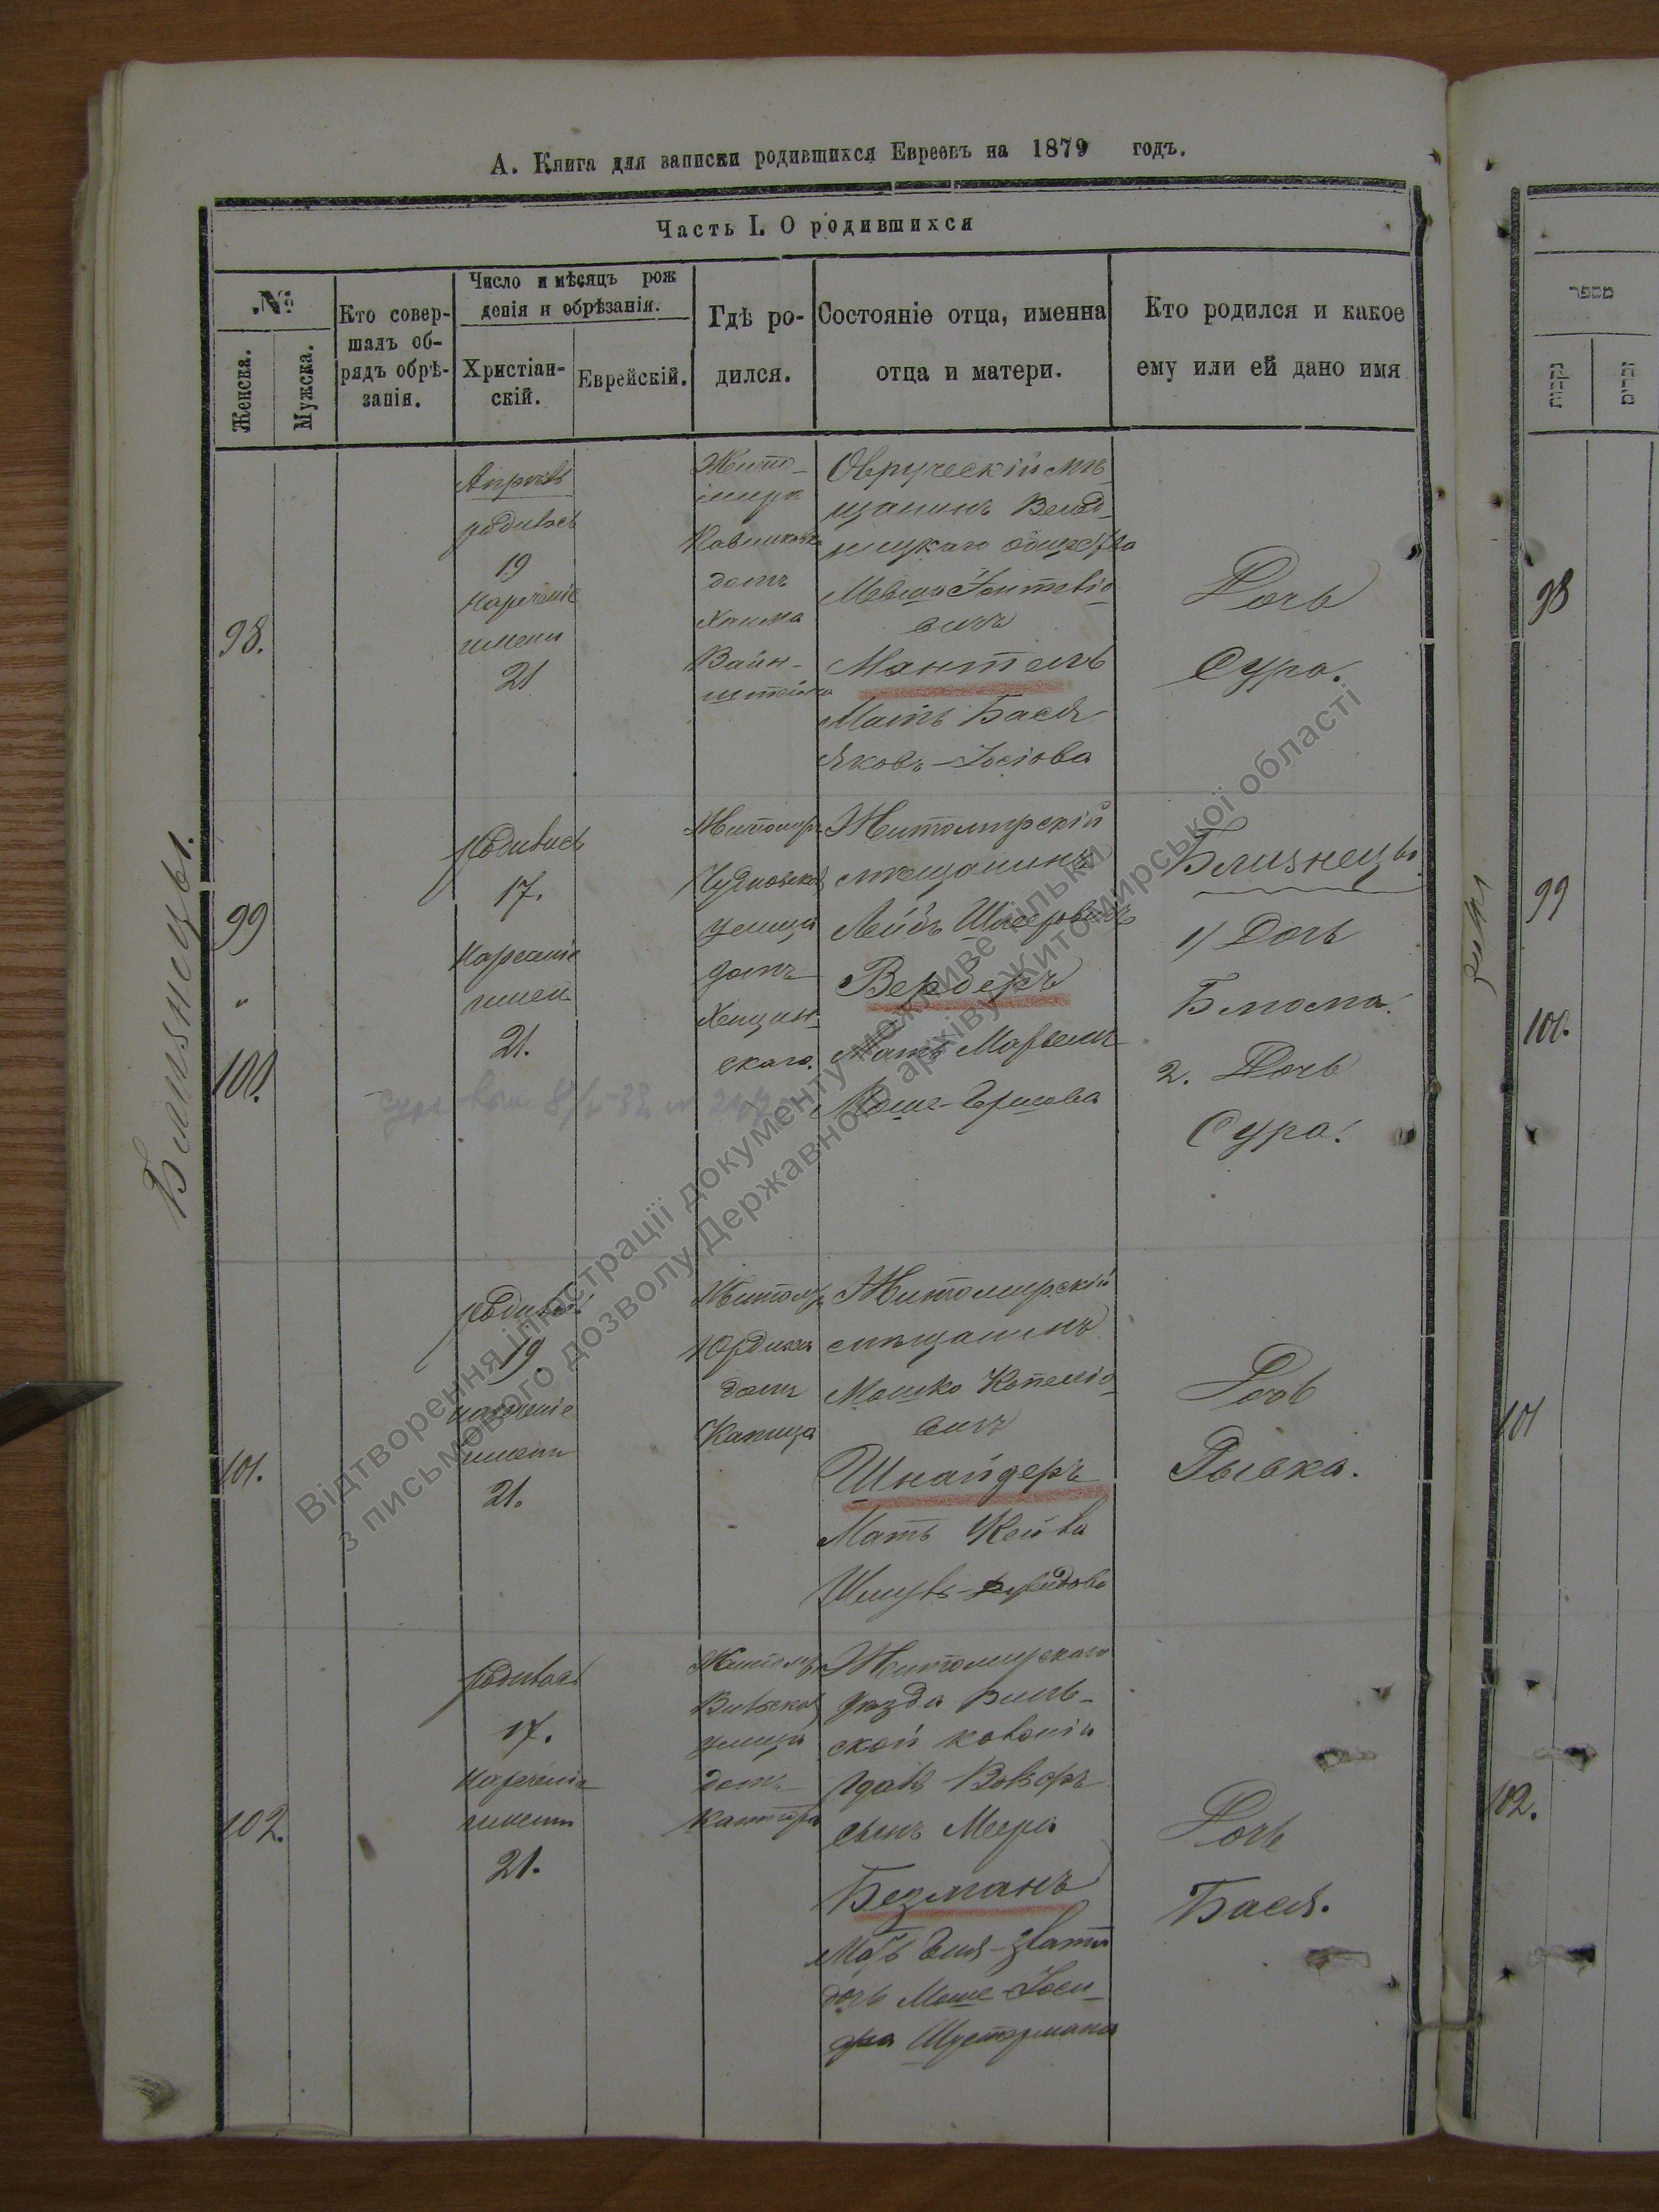 А. Книга для записки родившихся Евреевъ на 1879 годъ.
Часть I. О родившихся
№
Женска.
Мужска.
Кто совер-
шалъ об-
рядъ обрѣ-
занія.
Число и мѣсяцъ рож
денія и обрѣзанія.
Христіан-
скій.
Еврейскій.
Гдѣ ро-
дился.
Состояніе отца, именна
отца и матери.
Кто родился и какое
ему или ей дано имя
98.
родилась
19
нареченіе
имени
21
Жито-
мира
домъ
Хаима
Вайн-
штейна
Овруческій мѣ-
щанинъ
общества
Мантель
Мать Бася
Яковъ-Іосіова
Дочь
Сура.
Близнецы.
99
"
100.
родились
17.
Нареченіе
имен
21.
Житомир
Чудновская
улица
домъ
скаго.
Житомирскій
мещанинъ
Лейбъ Шмееровичъ
Верберъ
Мать Марьемъ
Моше-Гершова
Близнецы.
1) Дочь
Блюма.
2. Дочь
Сура.
101.
родилась
19.
нареченіе
имени
21.
Житомир
домъ
Капица
Житомирскій
мещанинъ
Мошко Копеліо-
вичъ
Шнайдеръ
Мать Хейва
Дочь
Рывка.
102.
родилась
17.
нареченіе
имени
21.
Житомир
Вильская
улица
домъ
Кантора
Житомирскаго
уезда Виль-
ской колоніи
сынъ Меера
Безманъ
дочь Моше-Іоси-
фа Шустермана
Дочь
Бася.
מספר
נקבות
זכרים
98
99
100.
101
102.
Відтворення ілюстрації документу можливе тільки
з письмового дозволу Державного архіву Житомирської області